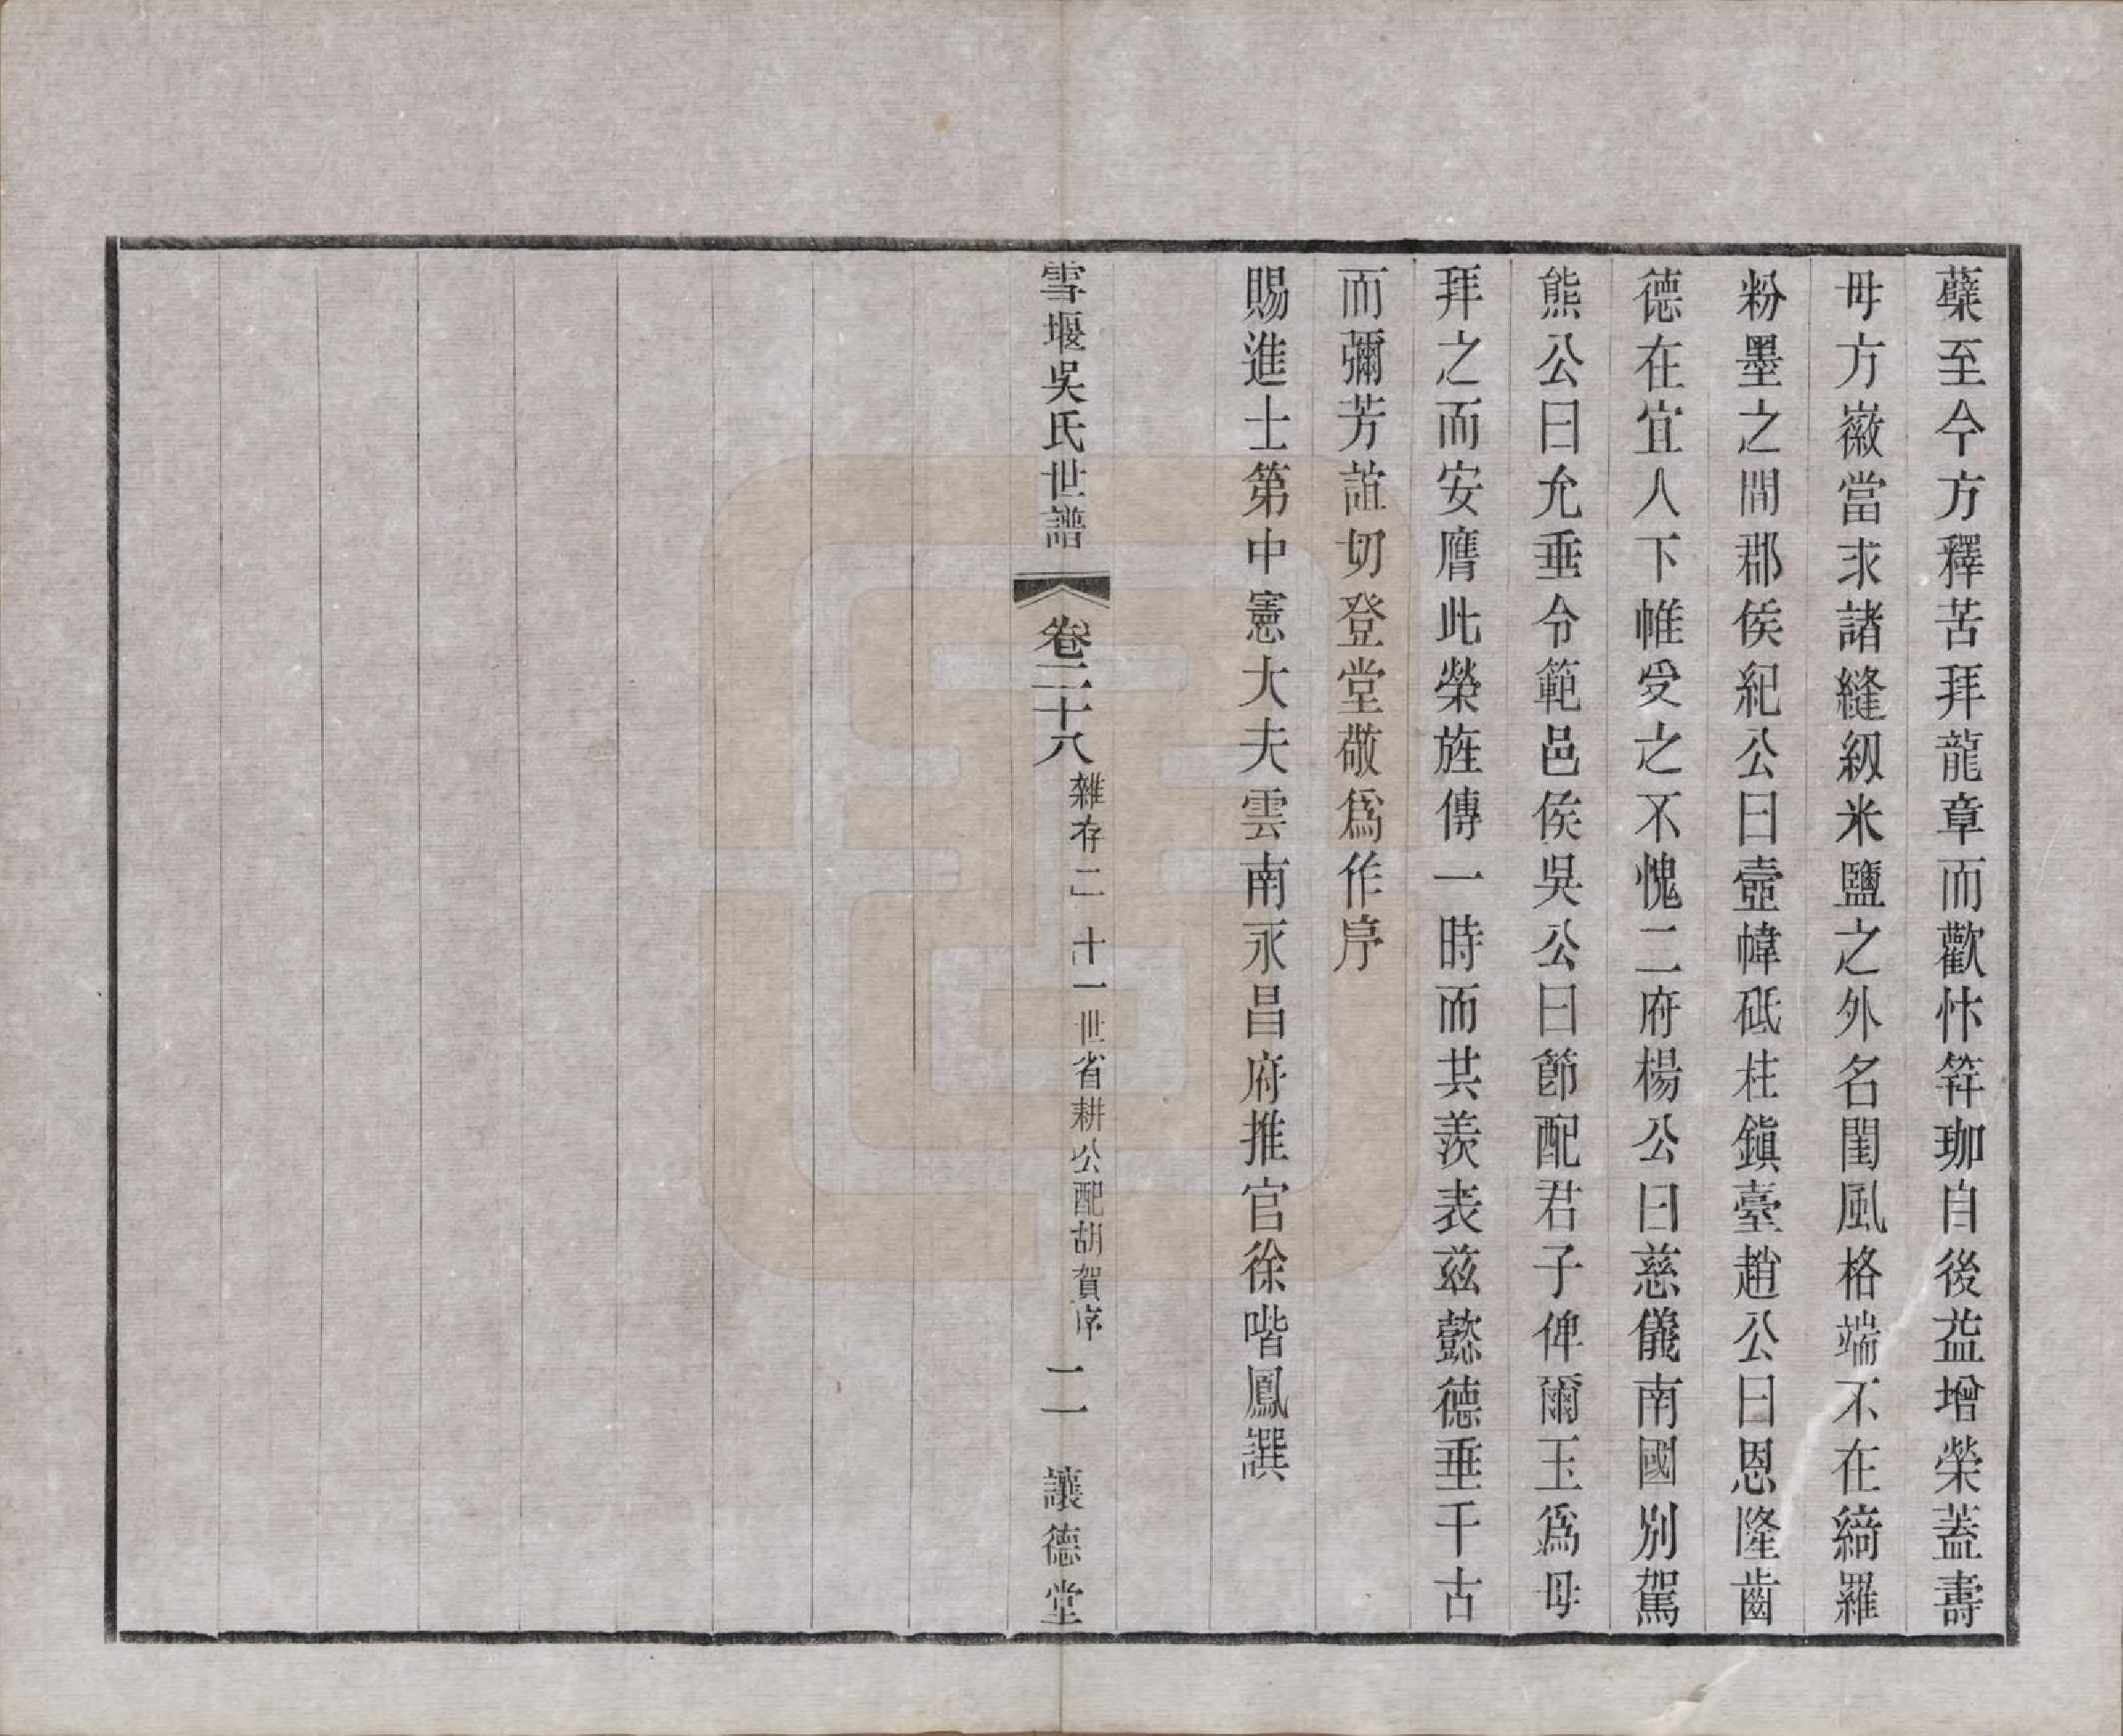 蘗至今方釋苦拜龍章而歡忭笄珈自後益增榮蓋壽
母方徽當求諸縫紉米鹽之外名閨風格端不在綺羅
粉墨之間郡侯紀公曰壼幃砥柱鎮臺趙公曰恩隆齒
德在宜人下帷受之不愧二府楊公曰慈儀南國別駕
熊公曰允垂令範邑侯吳公曰節配君子俾爾玉爲母
拜之而安膺此榮旌傳一時而共羨表茲懿德垂千古
而彌芳誼切登堂敬爲作序
賜進士第中憲大夫雲南永昌府推官徐喈鳳譔
雪堰吳氏世譜 卷二十八 雜存二 十一世省耕公配胡賀序 二 讓德堂